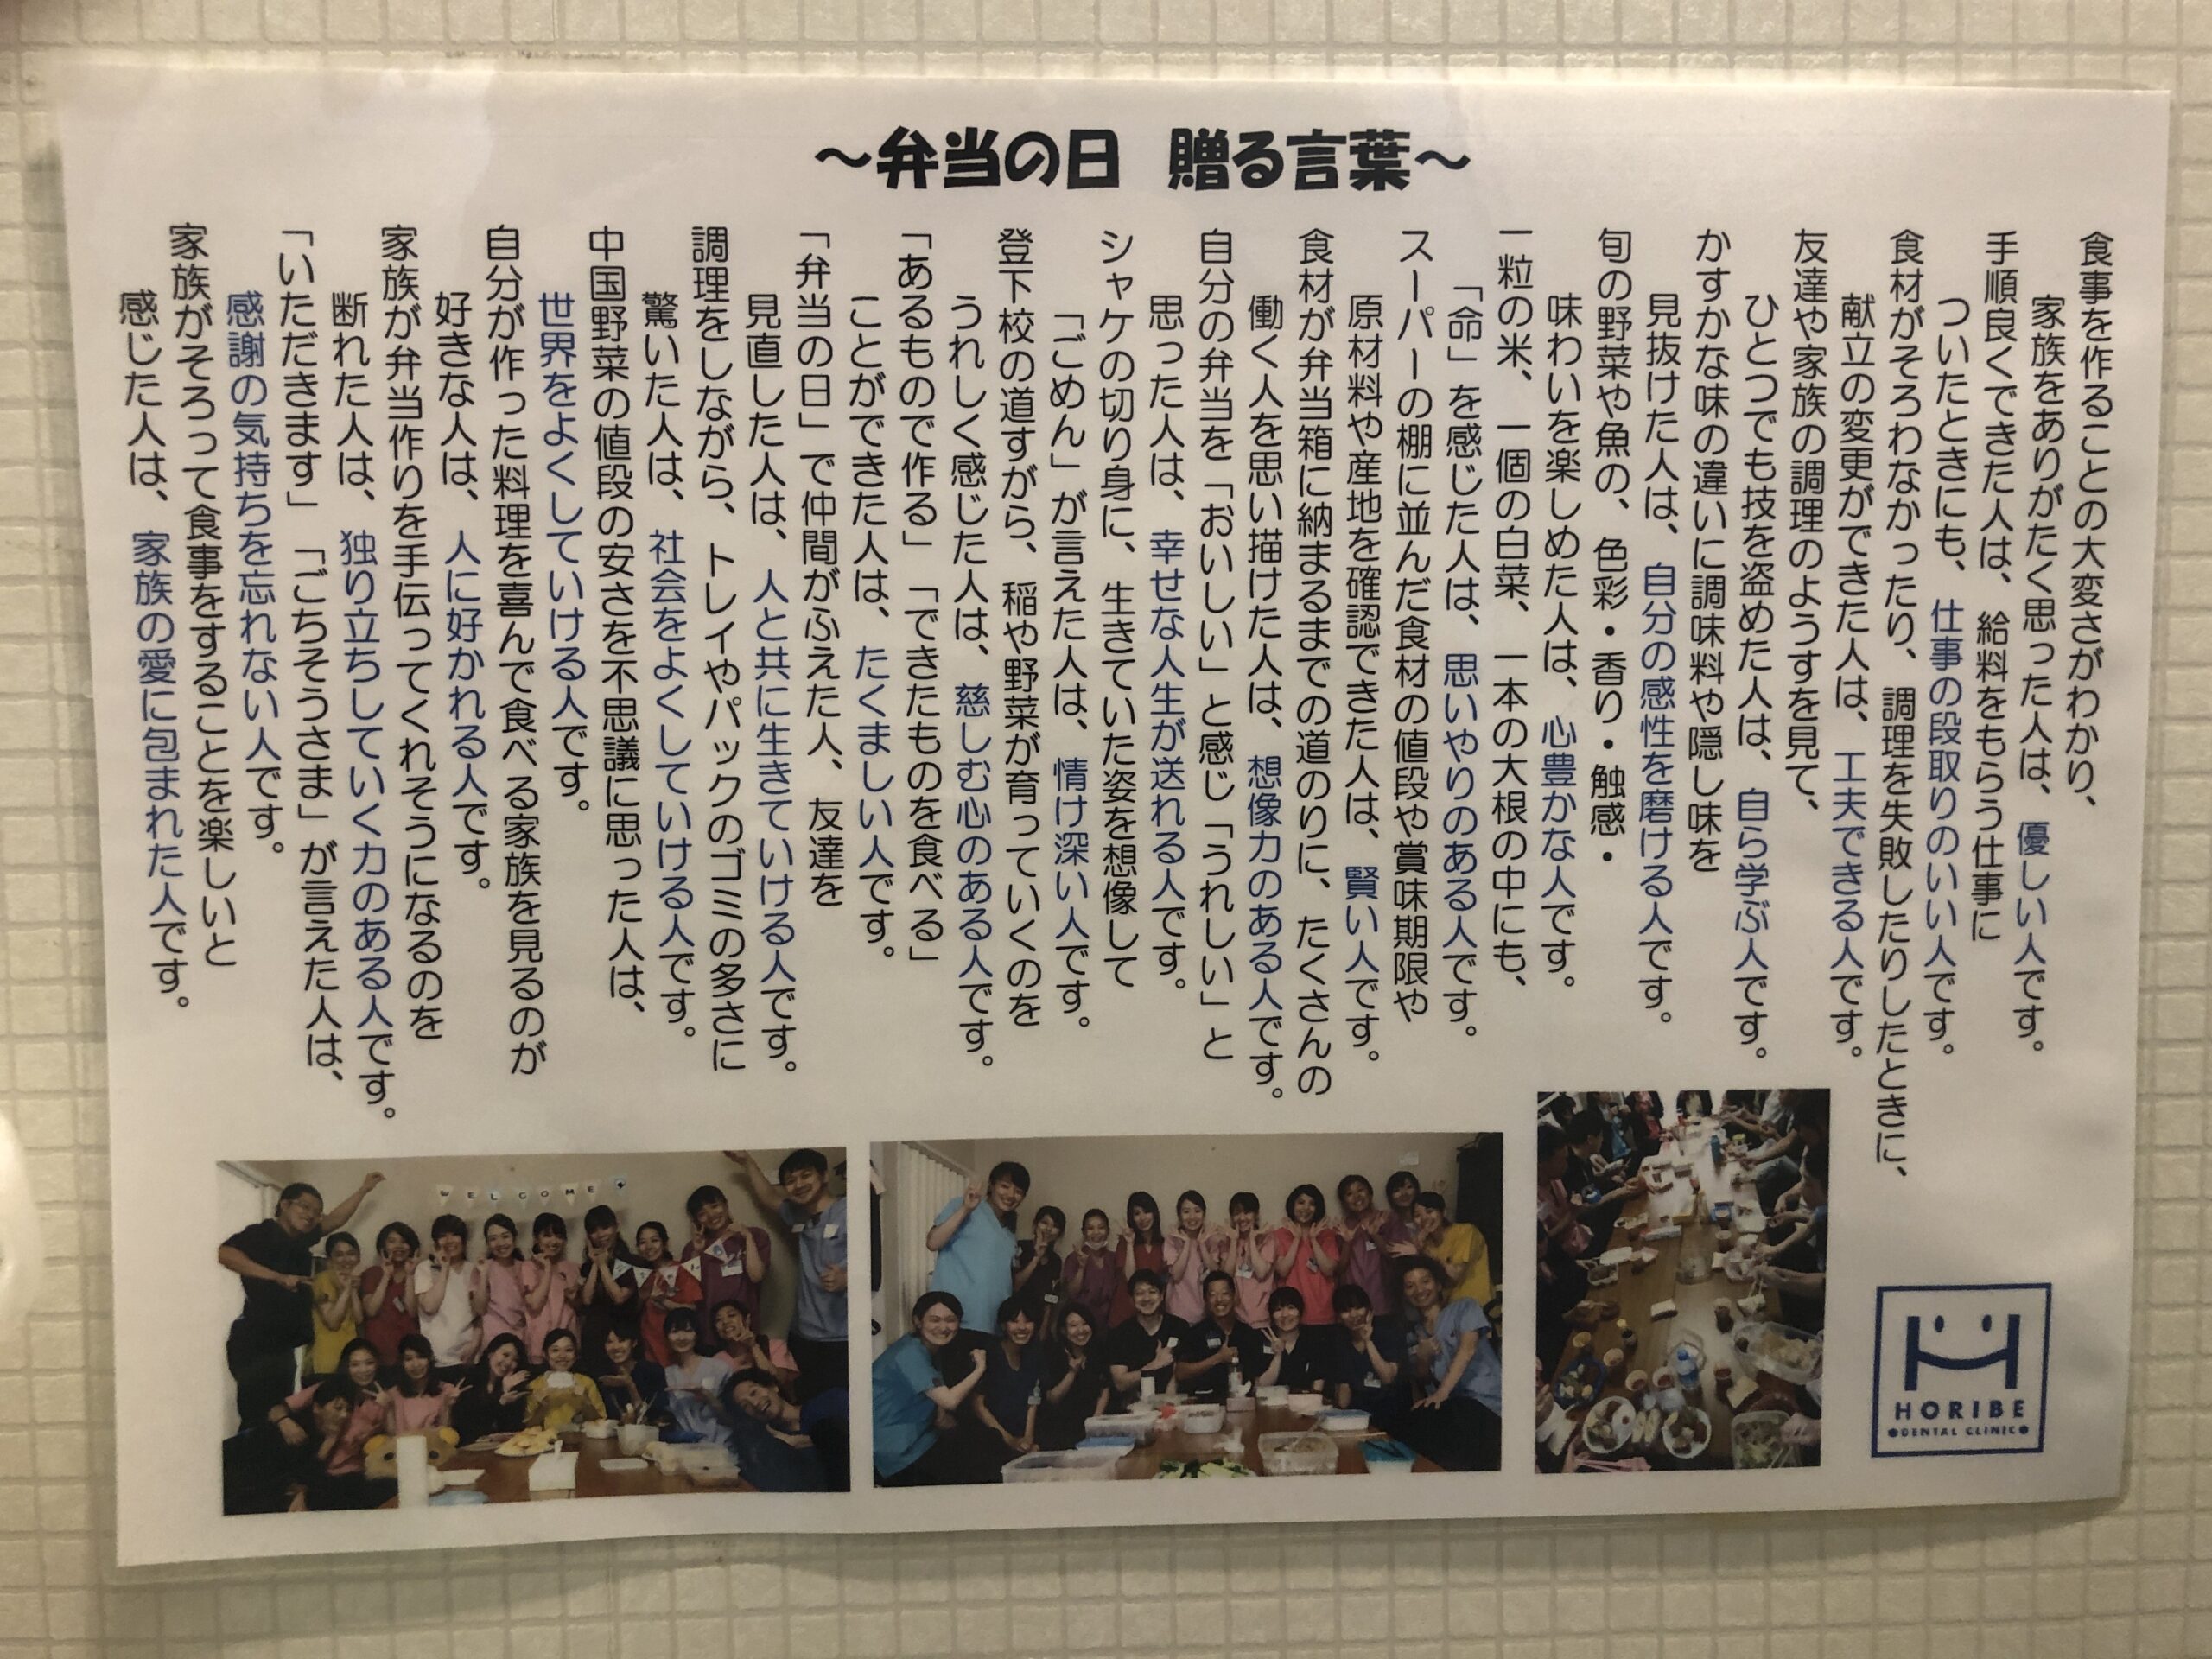 ～弁当の日　贈る言葉～
食事を作ることの大変さがわかり、
家族をありがたく思った人は、優しい人です。
手順良くできた人は、給料をもらう仕事に
ついたときにも、仕事の段取りのいい人です。
食材がそろわなかったり、調理を失敗したりしたときに、
献立の変更ができた人は、工夫できる人です。
友達や家族の調理のようすを見て、
ひとつでも技を盗めた人は、自ら学ぶ人です。
かすかな味の違いに調味料や隠し味を
見抜けた人は、自分の感性を磨ける人です。
旬の野菜や魚の、色彩・香り・触感・
味わいを楽しめた人は、心豊かな人です。
一粒の米、一個の白菜、一本の大根の中にも、
「命」を感じた人は、思いやりのある人です。
スーパーの棚に並んだ食材の値段や賞味期限や
原材料や産地を確認できた人は、賢い人です。
食材が弁当箱に納まるまでの道のりに、たくさんの
働く人を思い描けた人は、想像力のある人です。
自分の弁当を「おいしい」と感じ「うれしい」と
思った人は、幸せな人生が送れる人です。
シャケの切り身に、生きていた姿を想像して
「ごめん」が言えた人は、情け深い人です。
登下校の道すがら、稲や野菜が育っていくのを
うれしく感じた人は、慈しむ心のある人です。
「あるもので作る」「できたものを食べる」
ことができた人は、たくましい人です。
「弁当の日」で仲間がふえた人、友達を
見直した人は、人と共に生きていける人です。
調理をしながら、トレイやパックのゴミの多さに
驚いた人は、社会をよくしていける人です。
中国野菜の値段の安さを不思議に思った人は、
世界をよくしていける人です。
自分が作った料理を喜んで食べる家族を見るのが
好きな人は、人に好かれる人です。
家族が弁当作りを手伝ってくれそうになるのを
断れた人は、独り立ちしていく力のある人です。
「いただきます」「ごちそうさま」が言えた人は、
感謝の気持ちを忘れない人です。
家族がそろって食事をすることを楽しいと
感じた人は、家族の愛に包まれた人です。
WELCOME
HORIBE
DENTAL CLINIC